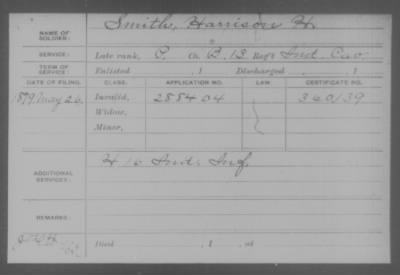 NAME OF SOLDIER: Smith, Harrison H.
SERVICE: Late rank, P, Co. B, 13 Reg't Ind. Cav
TERM OF SERVICE: Enlisted , 1 Discharged , 1
DATE OF FILING. CLASS. APPLICATION NO. LAW. CERTIFICATE NO.
1879, May 26. Invalid, 288404 360139
Widow,
Minor,
ADDITIONAL SERVICES: H 16 Ind. Inf.
REMARKS:
Died , 1 , at